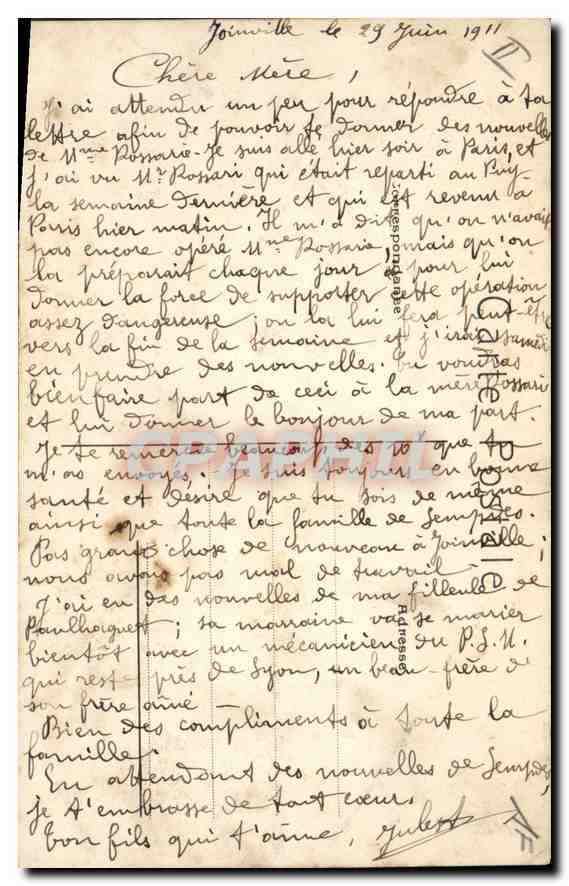 Joinville le 29 Juin 1911
II
Chère Mère,
J'ai attendu un peu pour répondre à ta
lettre afin de pouvoir te donner des nouvelles
de Mme Rossarie. Je suis allé hier soir à Paris, et
j'ai vu Mr Rossari qui était reparti au Puy-
la semaine dernière et qui est revenu à
Paris hier matin. Il m'a dit qu'on n'avait
pas encore opéré Mme Rossarie, mais qu'on
la préparait chaque jour pour lui
donner la force de supporter cette opération
assez dangereuse ; on la lui fera peut-être
vers la fin de la semaine et j'irai samedi
en prendre des nouvelles. Tu voudras
bien faire part de ceci à la mère Rossarie
et lui donner le bonjour de ma part.
Je te remercie beaucoup des 10f que tu
m'as envoyés. Je suis toujours en bonne
santé et désire que tu sois de même
ainsi que toute la famille de Lempdes.
Pas grand chose de nouveau à Joinville ;
nous avons pas mal de travail
J'ai eu des nouvelles de ma filleule de
Paulhaguet ; sa marraine va se marier
bientôt avec un mécanicien du P.L.M.
qui rest- près de Lyon, un beau-frère de
son frère aîné
Bien des compliments à toute la
famille.
En attendant des nouvelles de Lempdes,
je t'embrasse de tout cœur.
ton fils qui t'aime,
Carte Postale
Correspondance
Adresse
CPAPHIL
TF